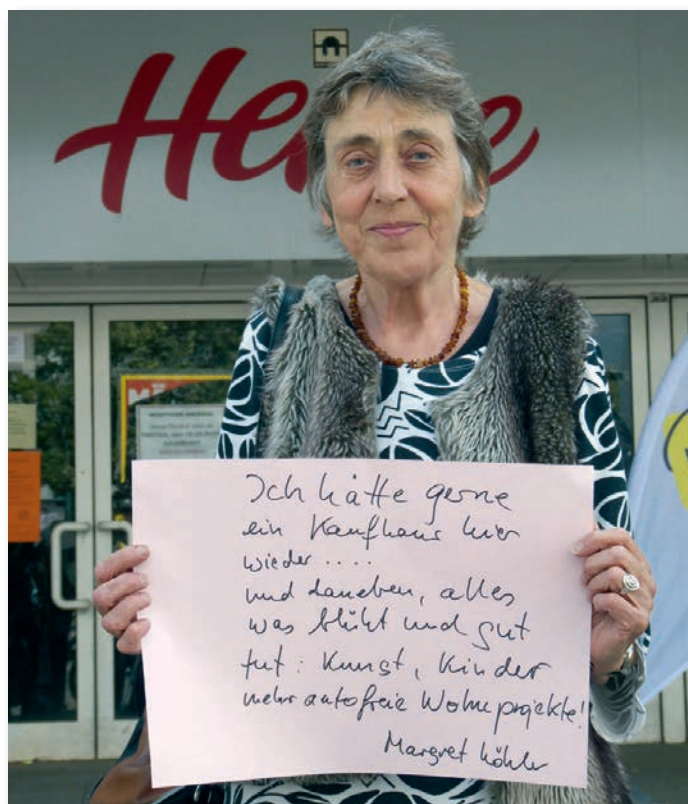 Ich hätte gerne
ein Kaufhaus hier
wieder....
und daneben, alles
was blüht und gut
tut: Kunst, Kinder
mehr autofreie Wohnprojekte!
Margret Köhler